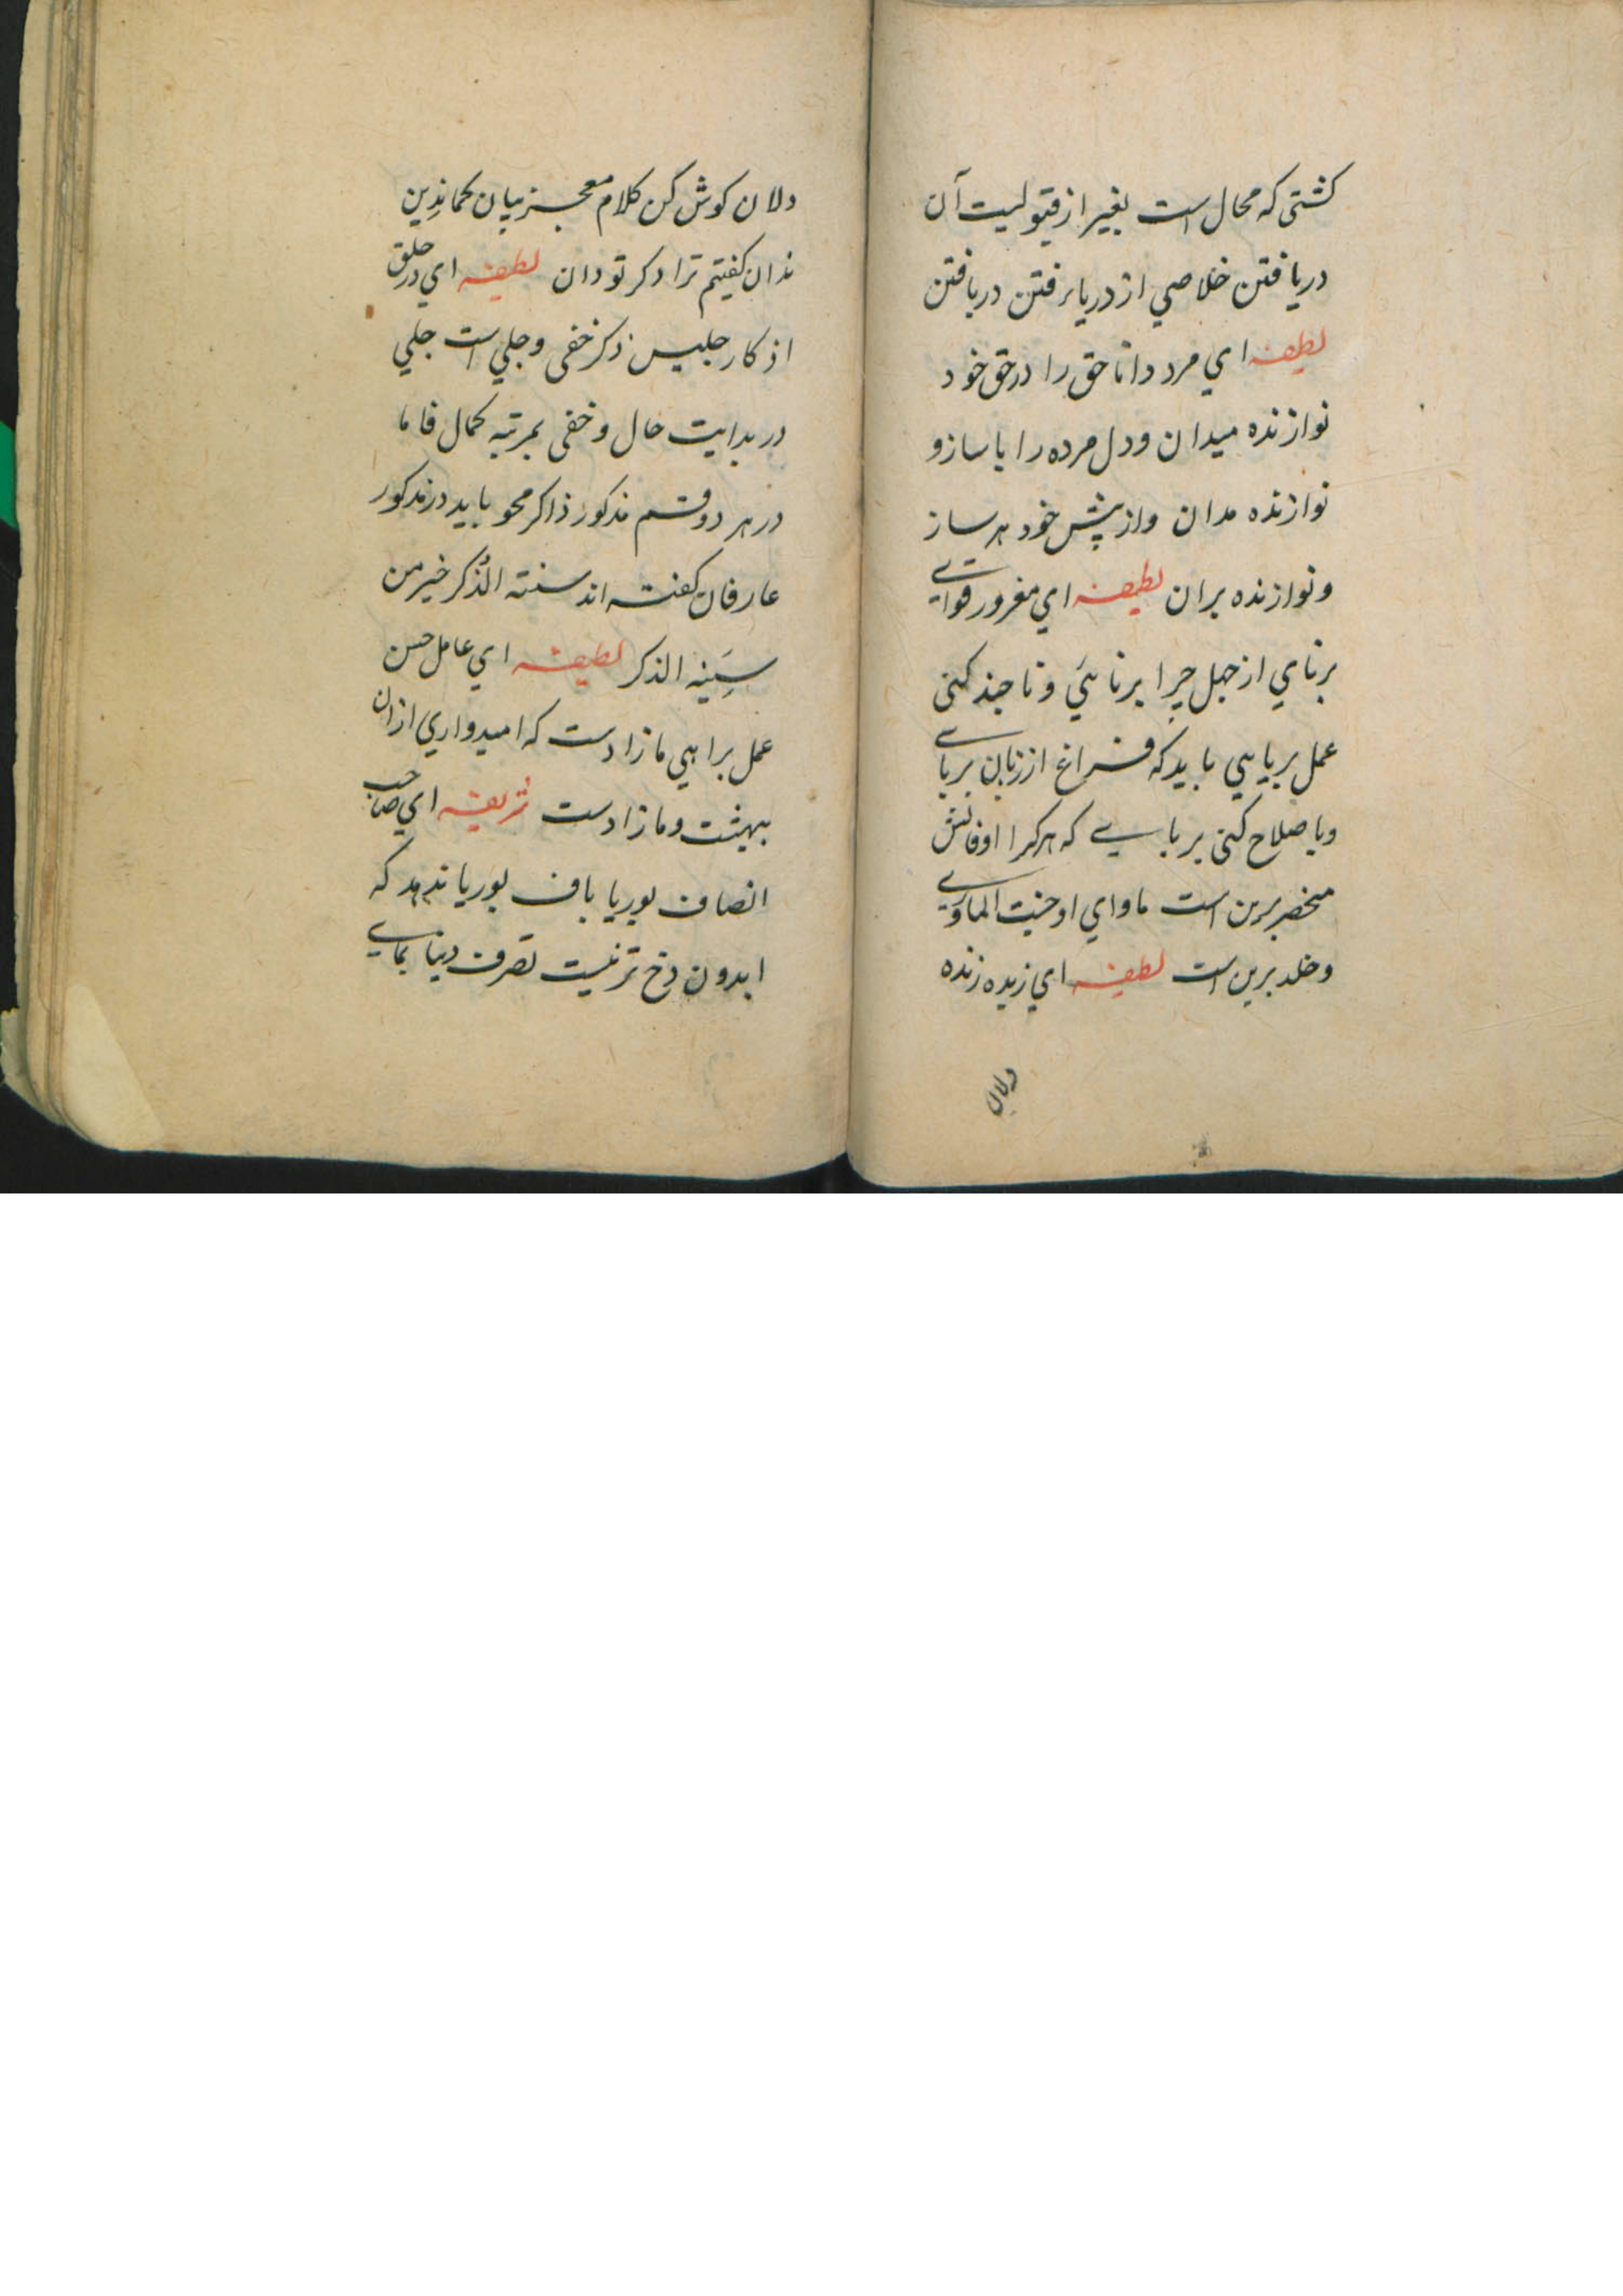 کشتی که محال است بغیر از قبولیت آن
دریافتن خلاصی از دریا رفتن دریافتن
لطیفه ای مرد دانا حق را در حق خود
نوازنده میدان و دل مرده را با ساز و
نوازنده مدان و از پیش خود هر ساز
و نوازنده بران لطیفه ای مغرور قوای
برنای از جهل چرا برنائی و تا چند کنی
عمل بریایی باید که فراغ از زبان بربای
و با صلاح کنی بربایی که هر کرا اوقاتش
منحصر برین است ماوای او جنت الماوی
و خلد برین است لطیفه ای زبده زنده
دلان
دلان کوش کن کلام معجز بیان
ندان کفیتم ترا دکر تو دان لطیفه ای در حلق
اذکار جلیس ذکر خفی و جلی است جلی
در بدایت حال و خفی بمرتبه کمال فاما
در هر دو قسم مذکور ذاکر محو باید در مذکور
عارفان کفته اند سنته الذکر خیر من
سینه الذکر لطیفه ای عامل حسن
عمل براهی ما زادست که امیدواری ازان
بهیشت و ما زادست شریفه ای صاحب
انصاف بوریا باف بوریا ندهد که
ابدون دخ تر نیست تصرف دنیا